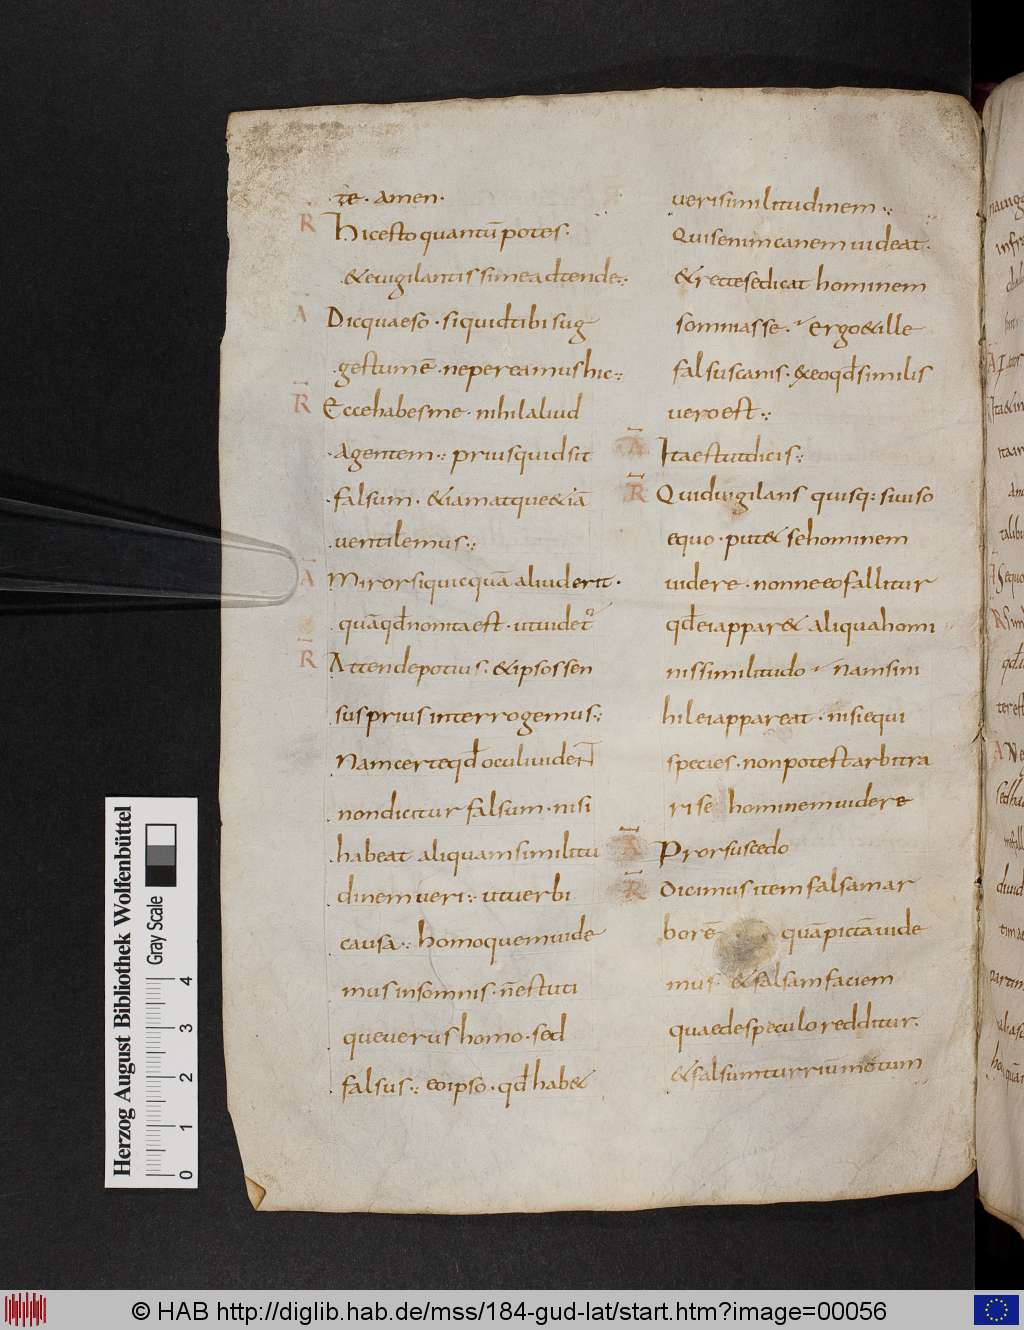 te · amen ·
R̄ Hicesto quantū potes ·
& euigilantissime adtende :·
Ā Dic quaeso · si quid tibi sug
gestum ē · ne pereamus hic :·
R̄ Ecce habes me · nihil aliud
agentem :· prius quid sit
falsum · & iam atque & iā
uentilemus :·
Ā Miror si quicquā aliud erit ·
quā qđ non ita est · ut uidet᷑
R̄ Attende potius · & ipsos sen
sus prius interrogemus :·
Nam certe qđ oculi uident
non dicitur falsum · nisi
habeat aliquam similitu
dinem ueri :· ut uerbi
causa :· homo quem uide
mus in somnis · n̄ est uti
que uerus homo · sed
falsus :· eo ipso · qđ hab&
ueri similitudinem :·
Quis enim canem uideat ·
& recte se dicat hominem
somniasse · ergo & ille
falsus canis · ex eo qđ similis
uero est :·
Ā Ita est ut dicis :·
R̄ Quid uigilans quisq: si uiso
equo · put& se hominem
uidere · nonne eo fallitur
qđ ei appar& aliqua homi
nis similitudo · nam si ni
hil ei appareat · nisi equi
species · non potest arbitra
ri se hominem uidere
Ā Prorsus cedo
R̄ Dicimus item falsam ar
borē quā pictā uide
mus · & falsam faciem
quae de speculo redditur ·
& falsum turriū motum
Herzog August Bibliothek Wolfenbüttel
Gray Scale
0 1 2 3 4
© HAB http://diglib.hab.de/mss/184-gud-lat/start.htm?image=00056